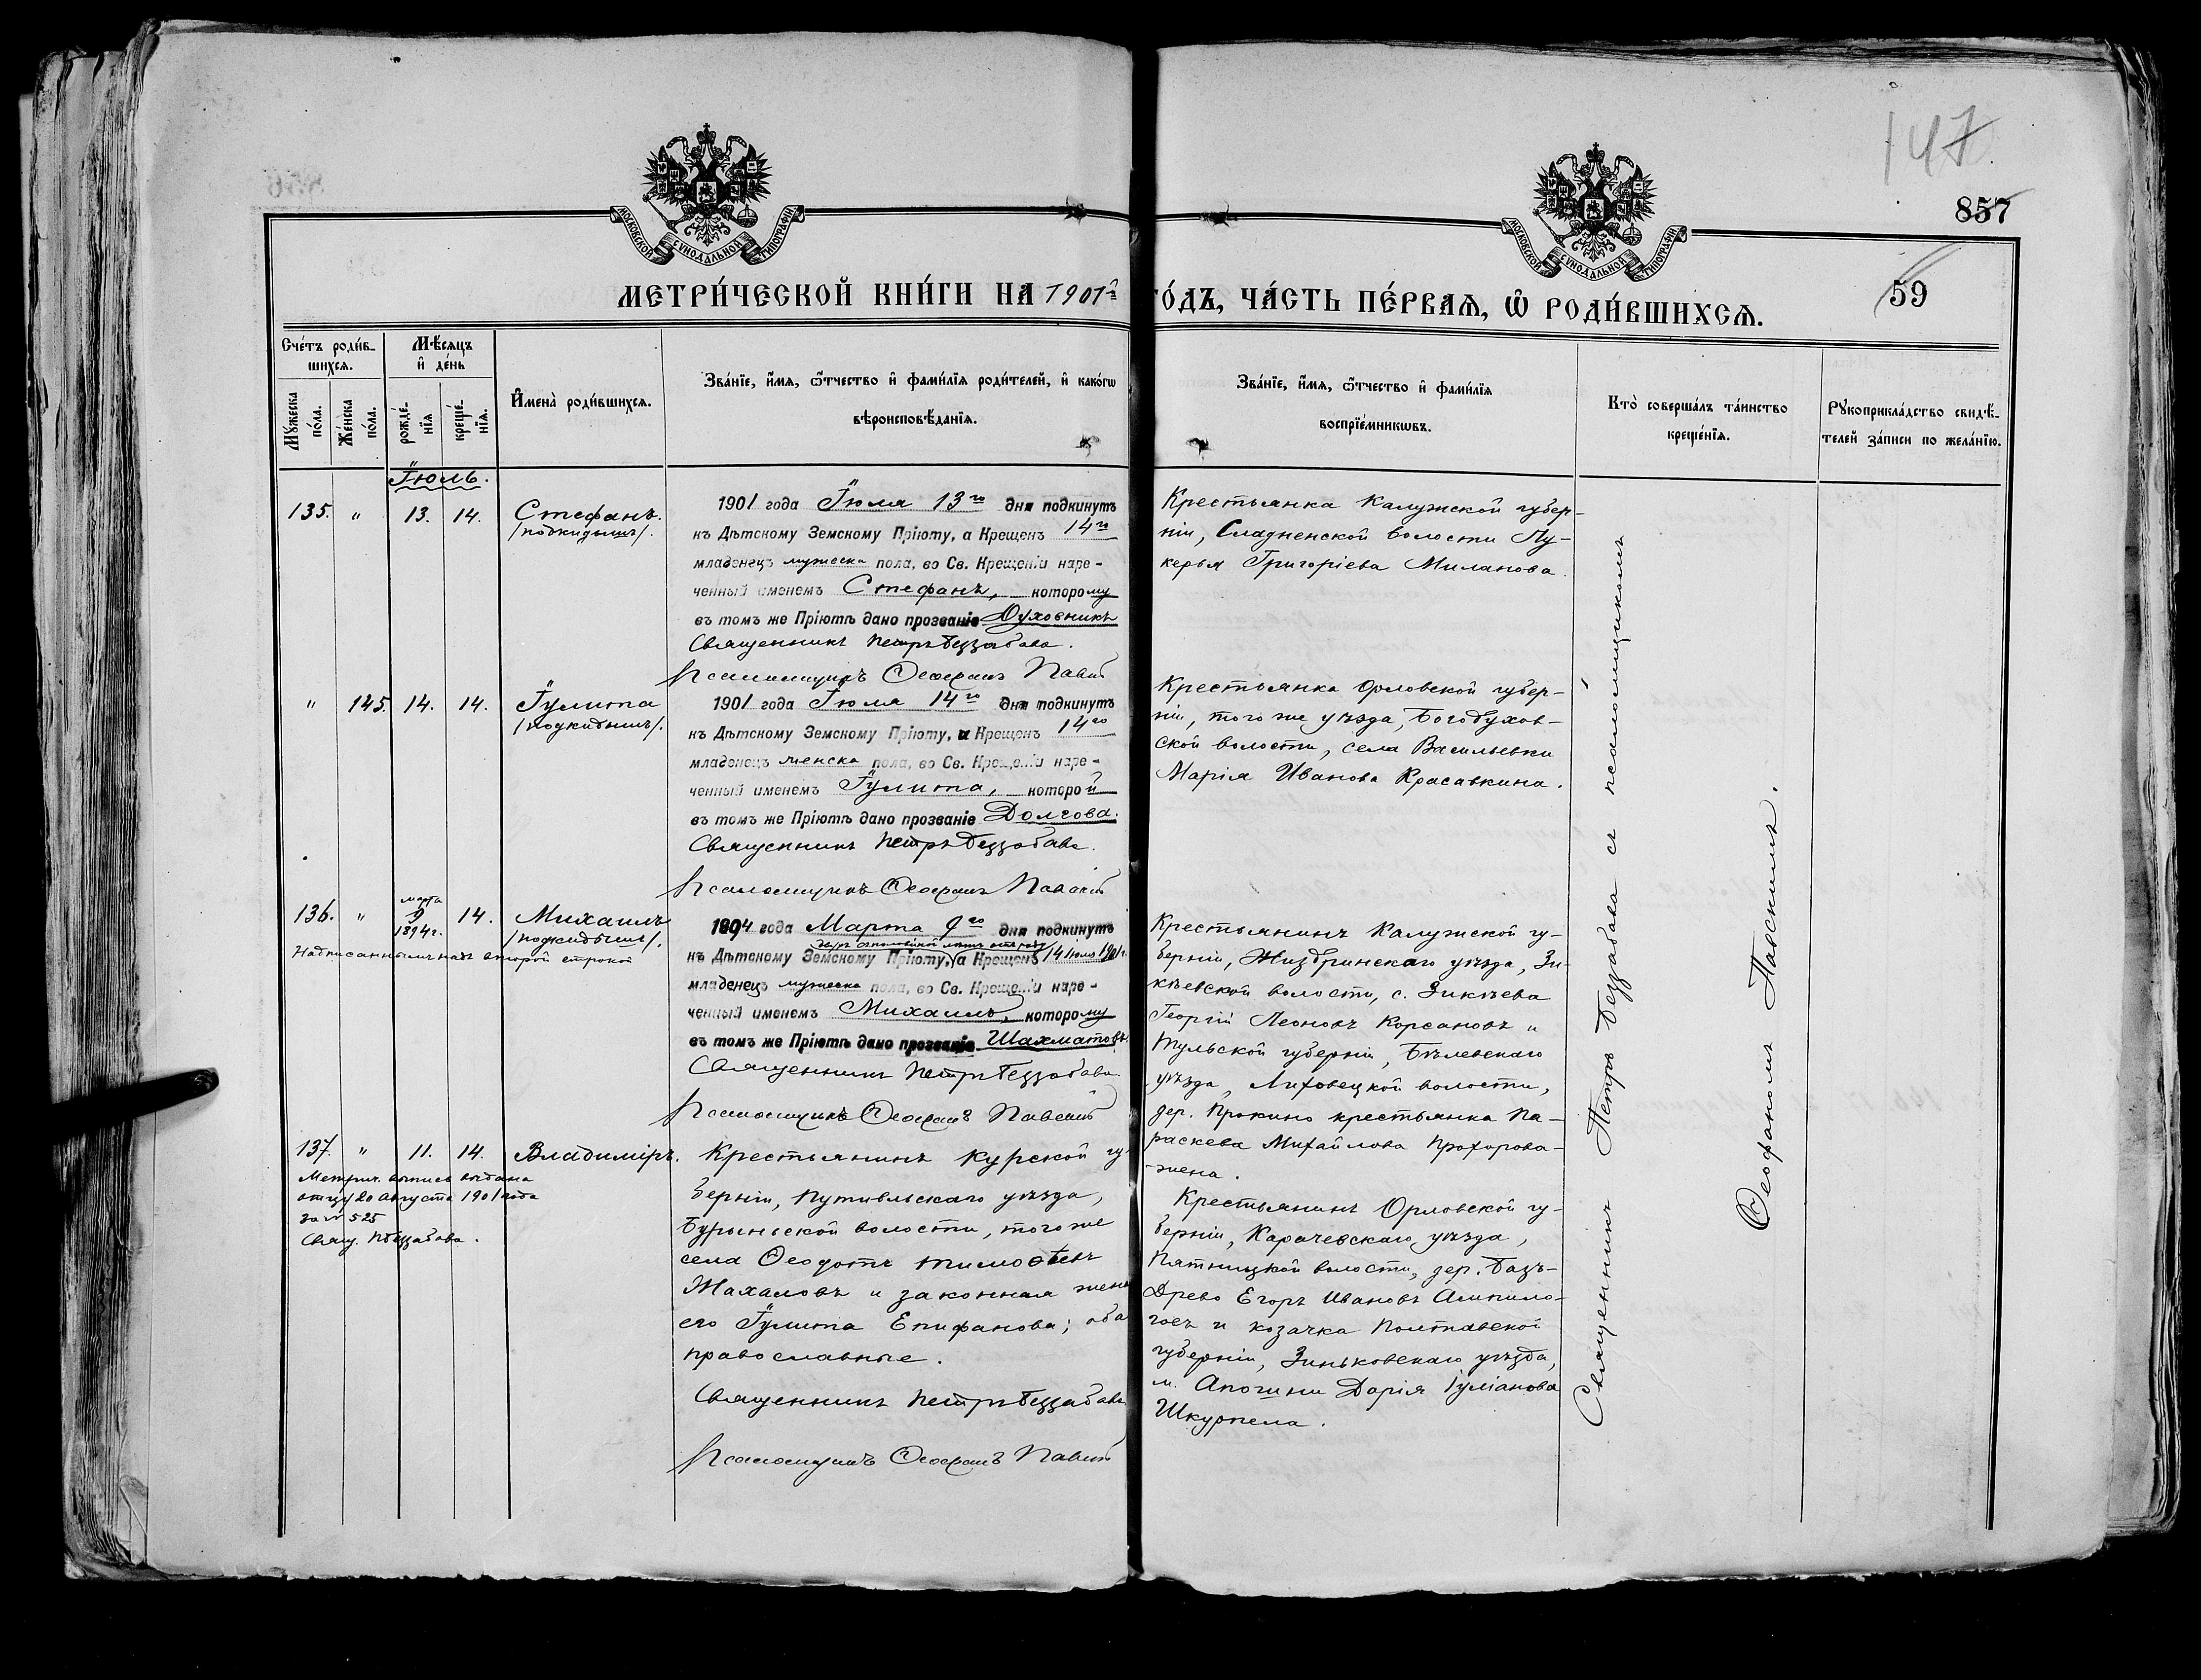 147
857
59
МОСКОВСКОЙ СУНОДАЛЬНОЙ ТИПОГРАФІИ
МОСКОВСКОЙ СУНОДАЛЬНОЙ ТИПОГРАФІИ
МЕТРИ́ЧЕСКОЙ КНИ́ГИ НА 1901й
ГО́ДЪ, ЧА́СТЬ ПЕ́РВАѦ, Ѡ РОДИ́ВШИХСѦ.
Сче́тъ роди́в-
шихсѧ.
Мѣ́сяцъ
и де́нь
Мꙋжеска по́ла.
Же́нска по́ла.
рожде́-
нїѧ
креще́-
нїѧ.
Имена̀ роди́вшихсѧ.
Зва́нїе, и́мѧ, ѻ́тчество и фами́лїѧ роди́телей, и како́гѡ
вѣроисповѣ́данїѧ.
Зва́нїе, и́мѧ, ѻ́тчество и фами́лїѧ
воспрїе́мникѡвъ.
Кто̀ соверша́лъ та́инство
креще́нїѧ.
Рꙋкоприкла́дство свидѣ́-
телей за́писи по жела́нїю.
Іюль.
135. " 13. 14. Стефанъ.
/подкидышъ/.
1901 года Іюля 13го дня подкинутъ
къ Дѣтскому Земскому Пріюту, а Крещенъ 14го
младенецъ мужеска пола, во Св. Крещеніи наре-
ченный именемъ Стефанъ, которому
въ томъ же Пріютѣ дано прозваніе Духовникъ
Священникъ Петръ Беззабава.
Псаломщикъ Ѳеофанъ
Крестьянка Калужской губер-
ніи, волости Лу-
керья Григоріева Миланова.
" 125. 14. 14. Іулита
/подкидышъ/.
1901 года Іюля 14го дня подкинутъ
къ Дѣтскому Земскому Пріюту, а Крещенъ 14го
младенецъ женска пола, во Св. Крещеніи наре-
ченный именемъ Іулита, которой
въ томъ же Пріютѣ дано прозваніе Долгова.
Священникъ Петръ Беззабава.
Псаломщикъ Ѳеофанъ
Крестьянка Орловской губер-
ніи, того же уѣзда, Богодухов-
ской волости, села Васильевки
Марія Иванова Красавкина.
136. " марта
9
1894 г. 14. Михаилъ
/подкидышъ/.
Надписанному надъ второй строкой
1894 года Марта 9го дня подкинутъ
къ Дѣтскому Земскому Пріюту, а Крещенъ 14 іюля 1901 г.
младенецъ мужеска пола, во Св. Крещеніи наре-
ченный именемъ Михаилъ, которому
въ томъ же Пріютѣ дано прозваніе Шахматовъ.
Священникъ Петръ Беззабава
Псаломщикъ Ѳеофанъ
Крестьянинъ Калужской гу-
берніи, Жиздринскаго уѣзда, Зи-
кѣевской волости, с. Зикѣева
Георгій Леоновъ Корсановъ и
Тульской губерніи, Бѣлевскаго
уѣзда, волости,
дер. Прокино крестьянка Па-
раскева Михайлова Прохорова-
-жена.
137. " 11. 14. Владиміръ.
Метрич. выпись выдана
отцу 20 августа 1901 года
за № 525
Свящ. П. Беззабава.
Крестьянинъ Курской гу-
берніи, Путивльскаго уѣзда,
Бурыньской волости, того же
села Ѳеодотъ Тимоѳеевъ
Жахаловъ и законная жена
его Іулита Епифанова; оба
православные.
Священникъ Петръ Беззабава
Псаломщикъ Ѳеофанъ
Крестьянинъ Орловской гу-
берніи, Карачевскаго, уѣзда,
Пятницкой волости, дер. Базъ-
Древо Егоръ Ивановъ Алипило-
говъ и козачка Полтавской
губерніи, Зиньковскаго уѣзда,
м. Апошни Дарія Іуліанова
Шкурпела.
Священникъ Петръ Беззабава съ псаломщикомъ
Ѳеофаномъ Павскимъ.